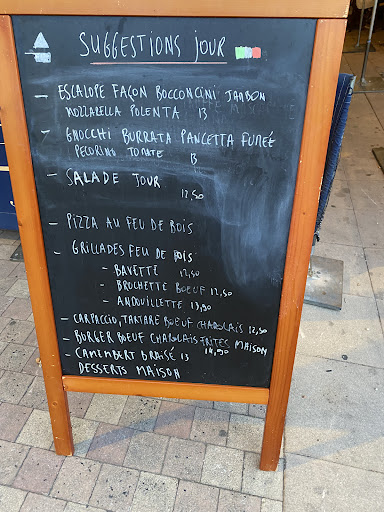 SUGGESTIONS JOUR
- ESCALOPE FAÇON BOCCONCINI JAMBON
MOZZARELLA POLENTA 13
- GNOCCHI BURRATA PANCETTA FUMÉE
PECORINO TOMATE 13
- SALADE JOUR
12,50
- PIZZA AU FEU DE BOIS
- GRILLADES FEU DE BOIS
- BAVETTE 12,50
- BROCHETTE BOEUF 12,50
- ANDOUILLETTE 13,50
- CARPACCIO, TARTARE BOEUF CHAROLAIS 12,50
- BURGER BOEUF CHAROLAIS FRITES MAISON
14,50
- CAMEMBERT BRAISÉ 13
DESSERTS MAISON